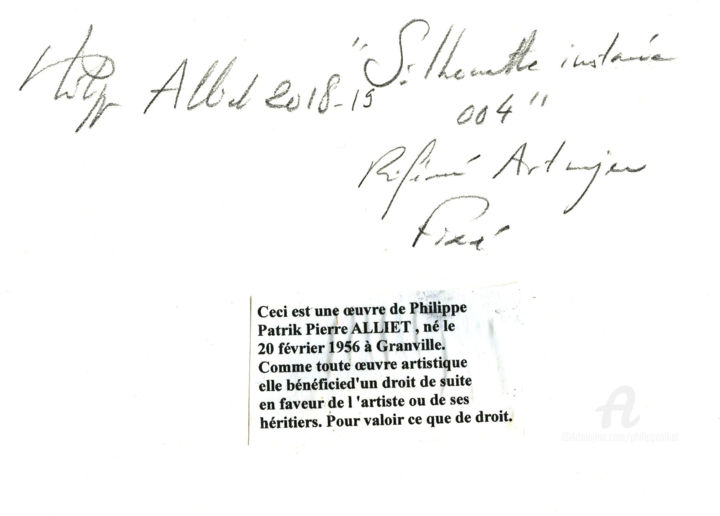 Philipp Alliet 2018-19 "Silhouette instanée
004"
Référencé Artmajeur
Fixé
Ceci est une œuvre de Philippe
Patrik Pierre ALLIET , né le
20 février 1956 à Granville.
Comme toute œuvre artistique
elle bénéficied'un droit de suite
en faveur de l 'artiste ou de ses
héritiers. Pour valoir ce que de droit.
A